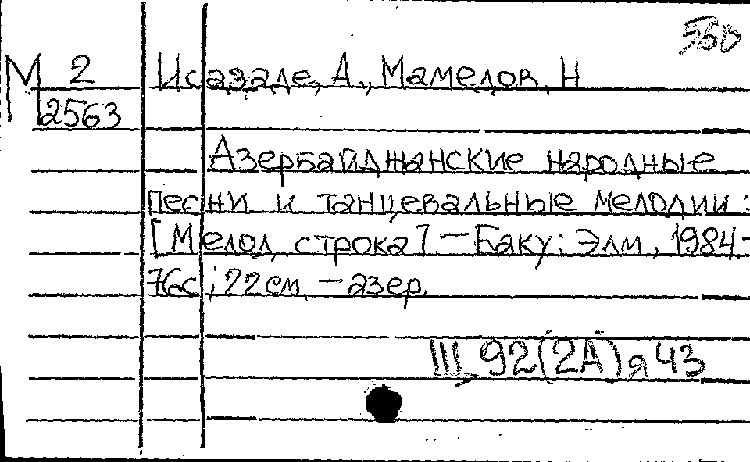 550
М 2 Исазаде, А., Мамедов, Н
2563
Азербайджанские народные
песни и танцевальные мелодии:
[Мелод, строка] — Баку: Элм, 1984-
76с; 22 см. — азер.
III 92(2А)я43